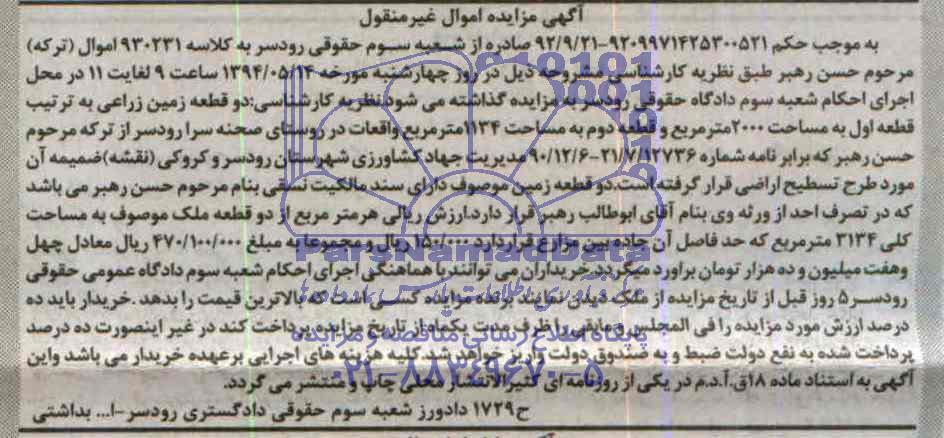 آگهی مزایده اموال غیرمنقول
به موجب حکم ۹۲۰۹۹۷۱۴۲۵۳۰۰۵۲۱-۹۲/۹/۲۱ صادره از شعبه سوم حقوقی رودسر به کلاسه ۹۳۰۲۳۱ اموال (ترکه)
مرحوم حسن رهبر طبق نظریه کارشناسی مشروحه ذیل در روز چهارشنبه مورخه ۱۳۹۴/۰۵/۱۴ ساعت ۹ لغایت ۱۱ در محل
اجرای احکام شعبه سوم دادگاه حقوقی رودسر به مزایده گذاشته می شود.نظریه کارشناسی:دو قطعه زمین زراعی به ترتیب
قطعه اول به مساحت ۲۰۰۰مترمربع و قطعه دوم به مساحت ۱۱۳۴مترمربع واقعات در روستای صحنه سرا رودسر از ترکه مرحوم
حسن رهبر که برابر نامه شماره ۲۱/۷/۱۲۷۳۶-۹۰/۱۲/۶ مدیریت جهاد کشاورزی شهرستان رودسر و کروکی (نقشه)ضمیمه آن
مورد طرح تسطیح اراضی قرار گرفته است.دو قطعه زمین موصوف دارای سند مالکیت نسقی بنام مرحوم حسن رهبر می باشد
که در تصرف احد از ورثه وی بنام آقای ابوطالب رهبر قرار دارد.ارزش ریالی هرمتر مربع از دو قطعه ملک موصوف به مساحت
کلی ۳۱۳۴ مترمربع که حد فاصل آن جاده بین مزارع قراردارد ۱۵۰/۰۰۰ ریال و مجموعا به مبلغ ۴۷۰/۱۰۰/۰۰۰ ریال معادل چهل
وهفت میلیون و ده هزار تومان براورد میگردد.خریداران می توانندبا هماهنگی اجرای احکام شعبه سوم دادگاه عمومی حقوقی
رودسر ۵ روز قبل از تاریخ مزایده از ملک دیدن نمایند برنده مزایده کسی است که بالاترین قیمت را بدهد .خریدار باید ده
درصد ارزش مورد مزایده را فی المجلس و مابقی را ظرف مدت یکماه از تاریخ مزایده پرداخت کند در غیر اینصورت ده درصد
پرداخت شده به نفع دولت ضبط و به صندوق دولت واریز خواهد شد.کلیه هزینه های اجرایی برعهده خریدار می باشد واین
آگهی به استناد ماده ۱۸ق.آ.د.م در یکی از روزنامه ای کثیرالانتشار محلی چاپ و منتشر می گردد.
ح۱۷۲۹ دادورز شعبه سوم حقوقی دادگستری رودسر-ا... بداشتی
ParsNamadData
پایگاه اطلاع رسانی مناقصه و مزایده
۰۲۱-۸۸۳۴۹۶۷۰-۵